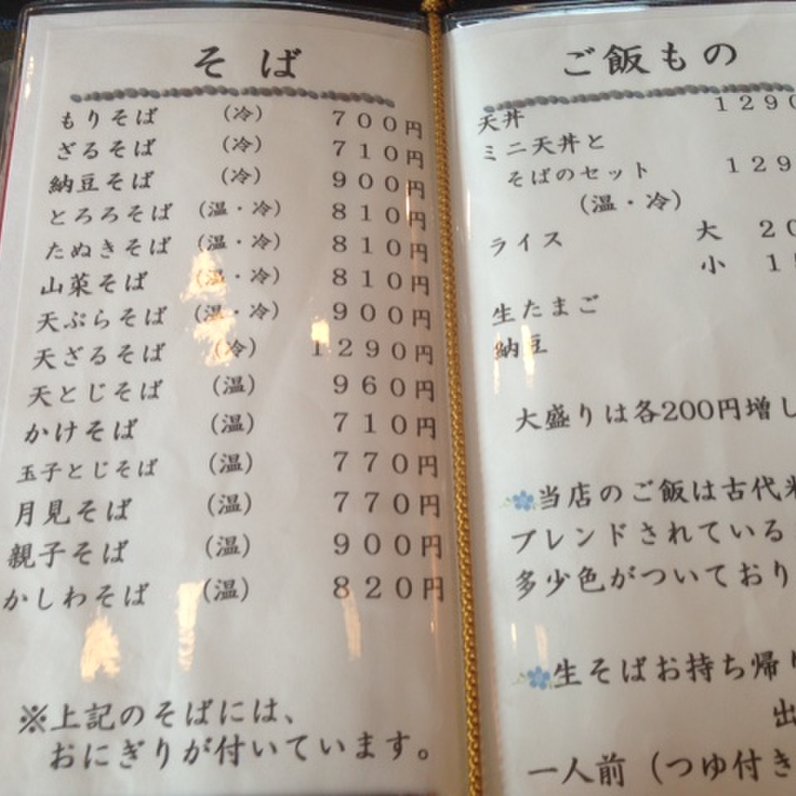 そば
もりそば （冷） 700円
ざるそば （冷） 710円
納豆そば （冷） 900円
とろろそば （温・冷） 810円
たぬきそば （温・冷） 810円
山菜そば （温・冷） 810円
天ぷらそば （温・冷） 900円
天ざるそば （冷） 1290円
天とじそば （温） 960円
かけそば （温） 710円
玉子とじそば （温） 770円
月見そば （温） 770円
親子そば （温） 900円
かしわそば （温） 820円
※上記のそばには、
おにぎりが付いています。
ご飯もの
天丼 1290
ミニ天丼と
そばのセット 129
（温・冷）
ライス 大 20
小 1
生たまご
納豆
大盛りは各200円増し
当店のご飯は古代米
ブレンドされている
多少色がついており
生そばお持ち帰り
出
一人前（つゆ付き